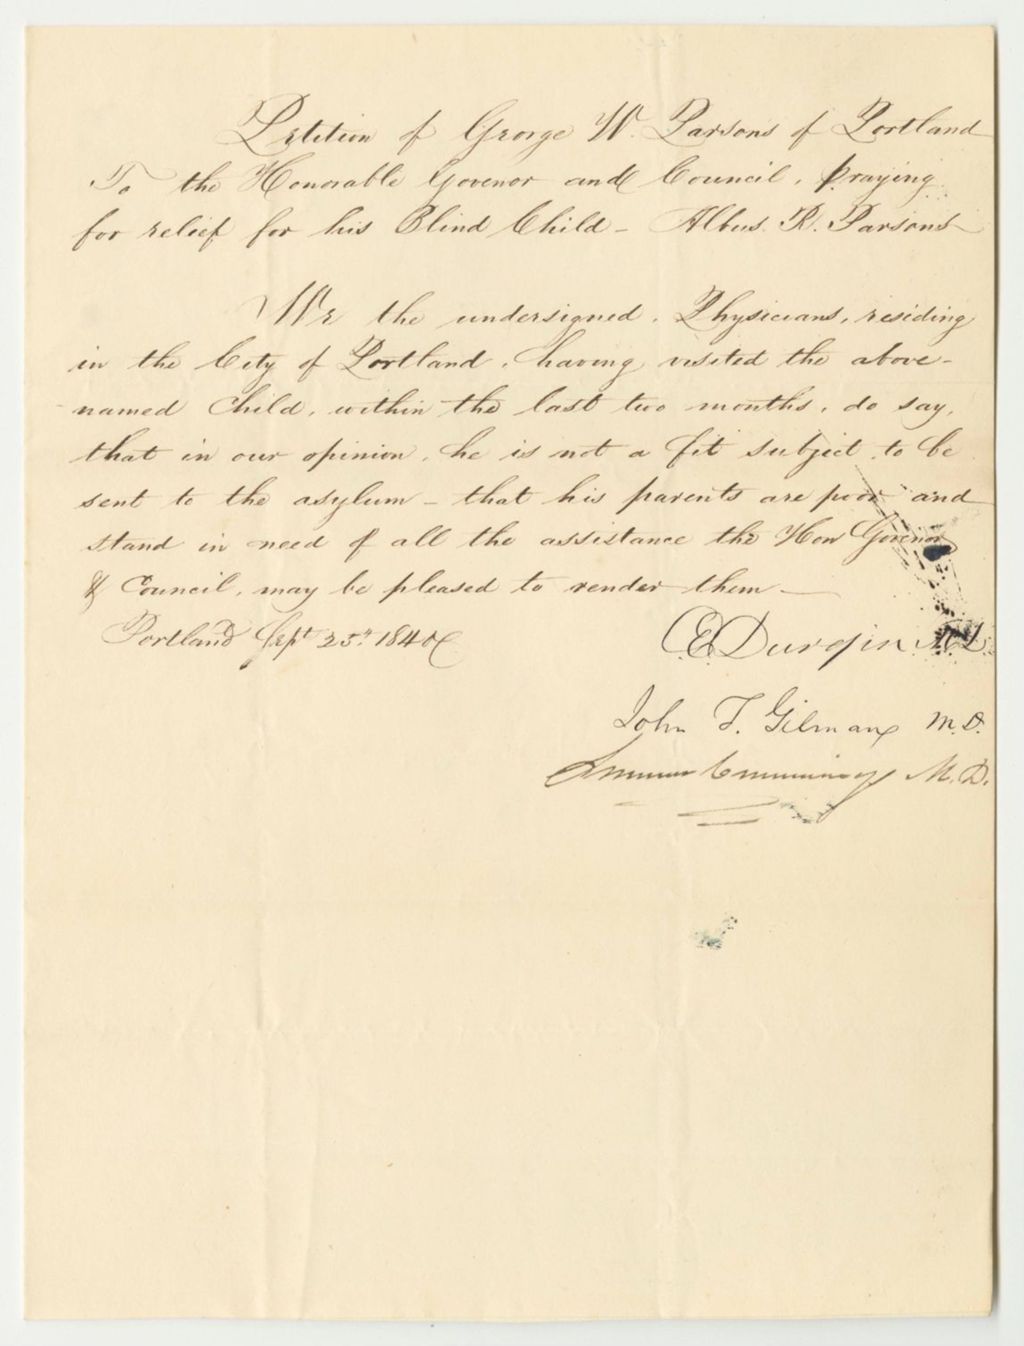 Petition of George W. Parsons of Portland
To the Honorable Govenor and Council, praying
for relief for his Blind Child - Albus. R. Parsons
We the undersigned, Physicians, residing
in the City of Portland, having visited the above-
named Child, within the last two months, do say,
that in our opinion, he is not a fit subject to be
sent to the asylum - that his parents are poor and
stand in need of all the assistance the Hon Govenor
& Council, may be pleased to render them -
Portland Sept 25th 1840
C E Durgin M.D.
John T. Gilman M.D.
Cummings M.D.